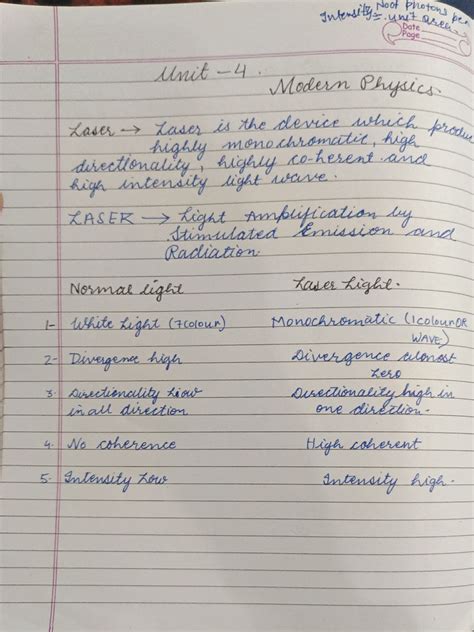 Intensity = No of photons per
unit area
Date
Page
Unit - 4.
Modern Physics.
Laser → Laser is the device which produc
highly monochromatic, high
directionality, highly co-herent and
high intensity light wave.
LASER → Light Amplification by
Stimulated Emission and
Radiation
Normal light Laser Light.
1- White Light (7colour) Monochromatic (1colour OR
WAVE)
2- Divergence high Divergence almost
zero
3. Directionality Low Directionality high in
in all direction one direction.
4. No coherence High coherent
5. Intensity Low Intensity high.